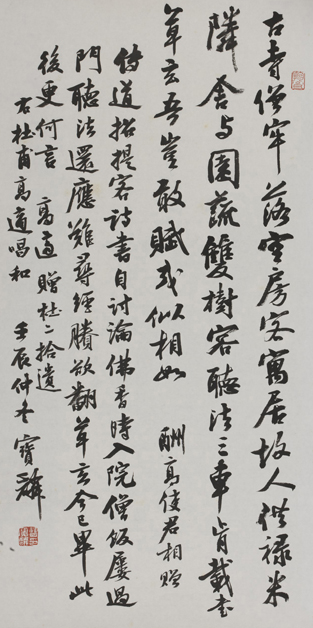 古寺僧牢落空房客寓居故人供禄米
隣舍与園蔬雙樹容聽法三車肯載書
草玄吾豈敢賦或似相如 酬高使君相贈
傳道招提客詩書自討論佛香時入院僧飯屢過
門聽法還應難尋經賸欲翻草玄今已畢此
後更何言 高適贈杜二拾遺
右杜甫高適唱和 壬辰仲冬 寶麟